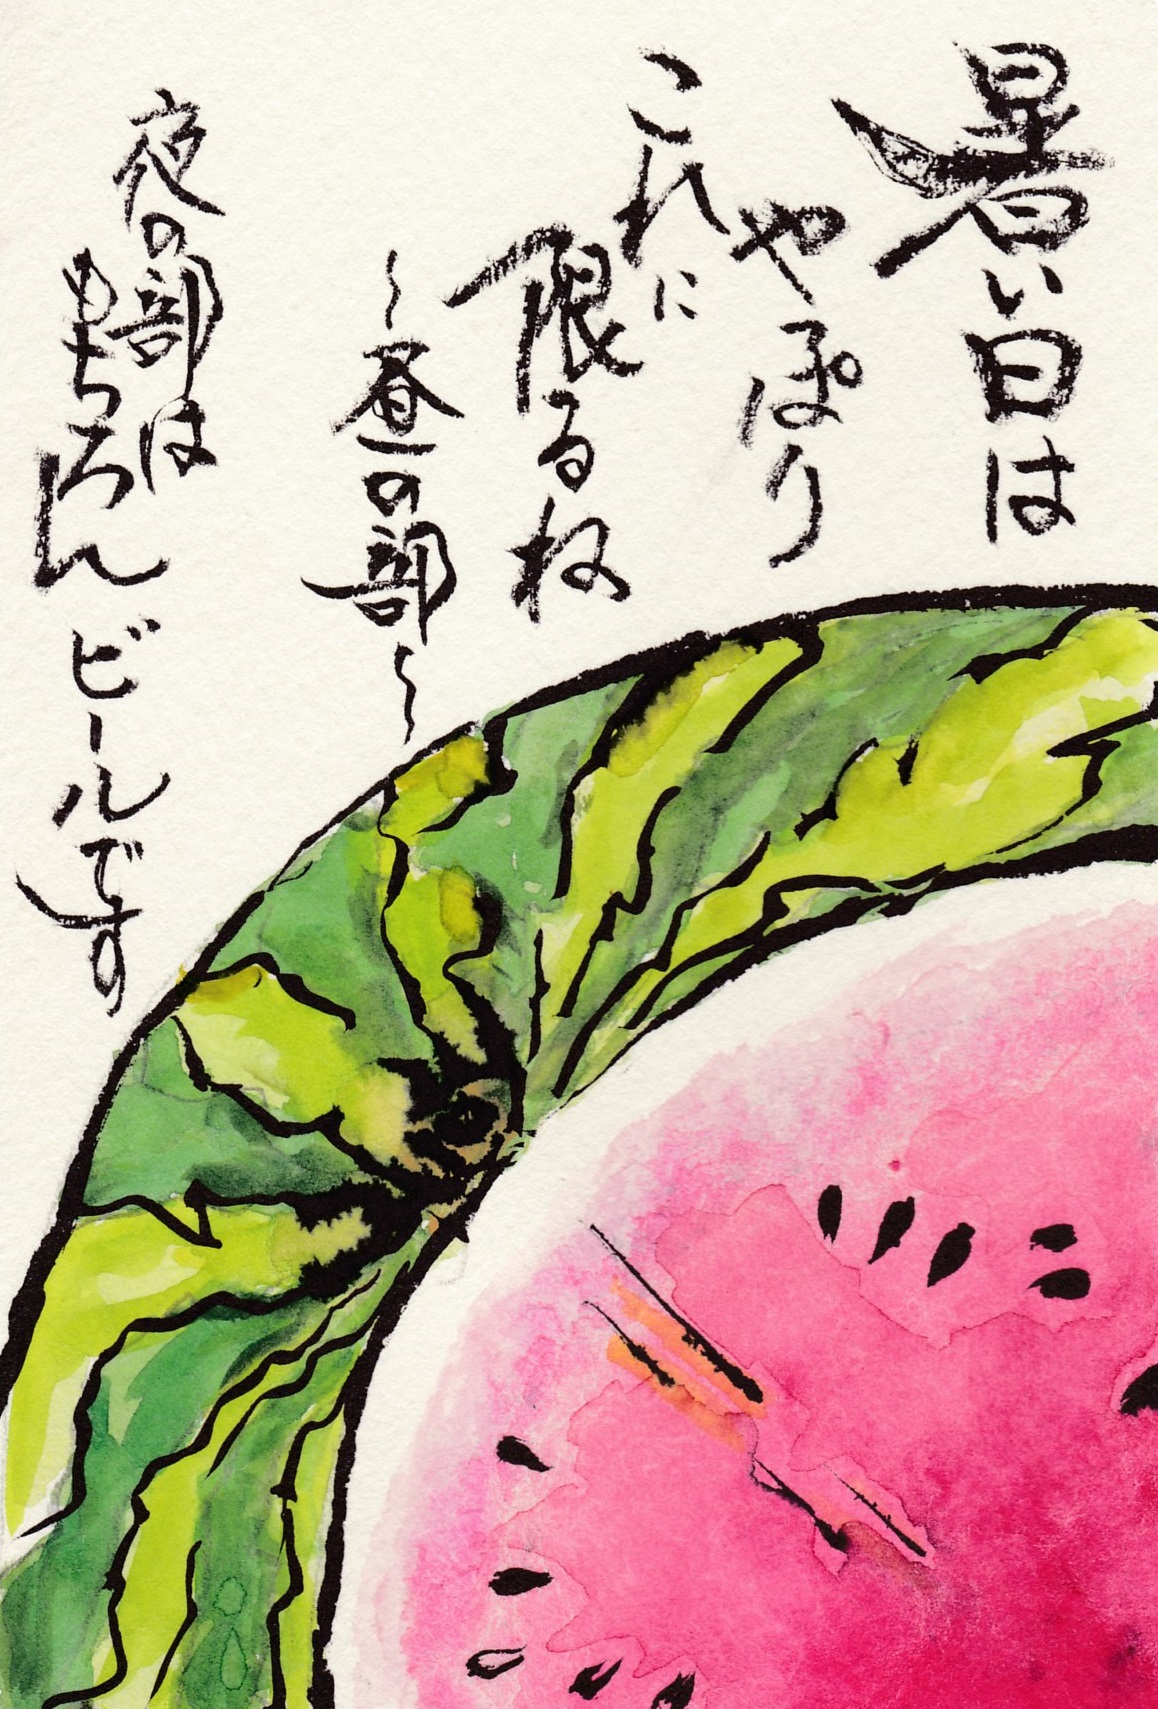 暑い日は
やっぱり
これに
限るね
～昼の部～
夜の部は
もちろん
ビールです